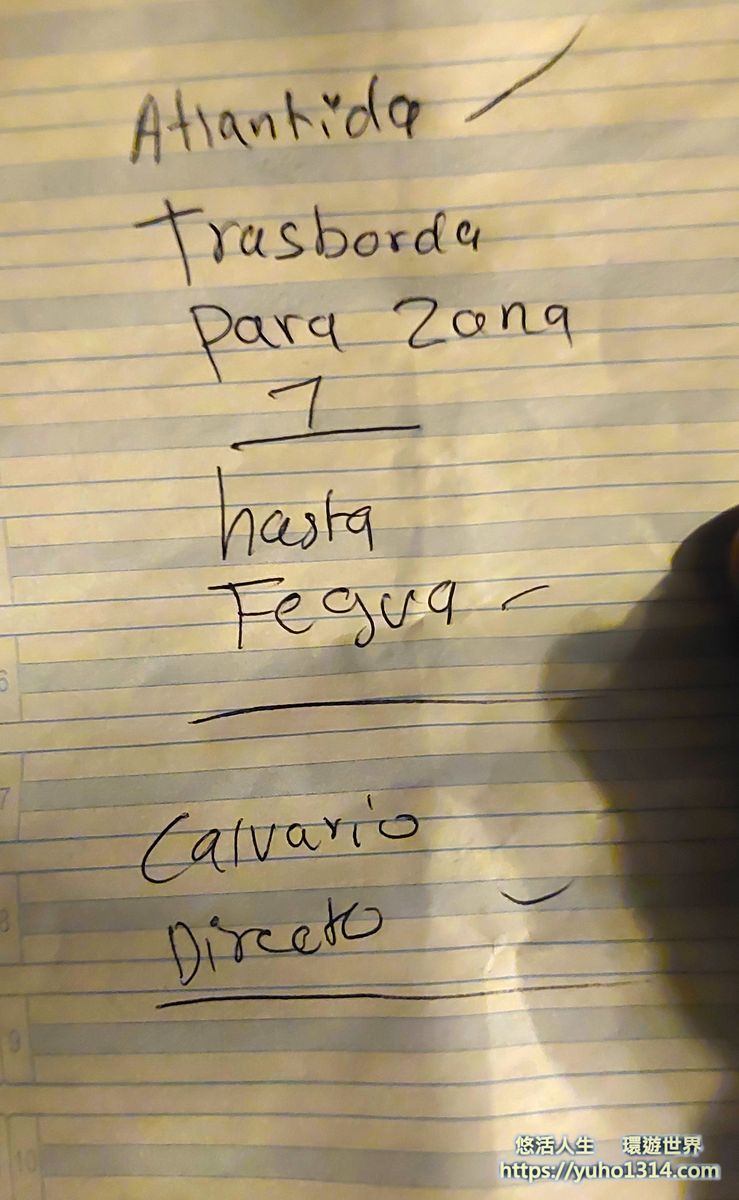 Atlantida
Trasborda
para Zona
1
hasta
Fegua
Calvario
Directo
6
7
8
9
10
悠活人生 環遊世界
https://yuho1314.com